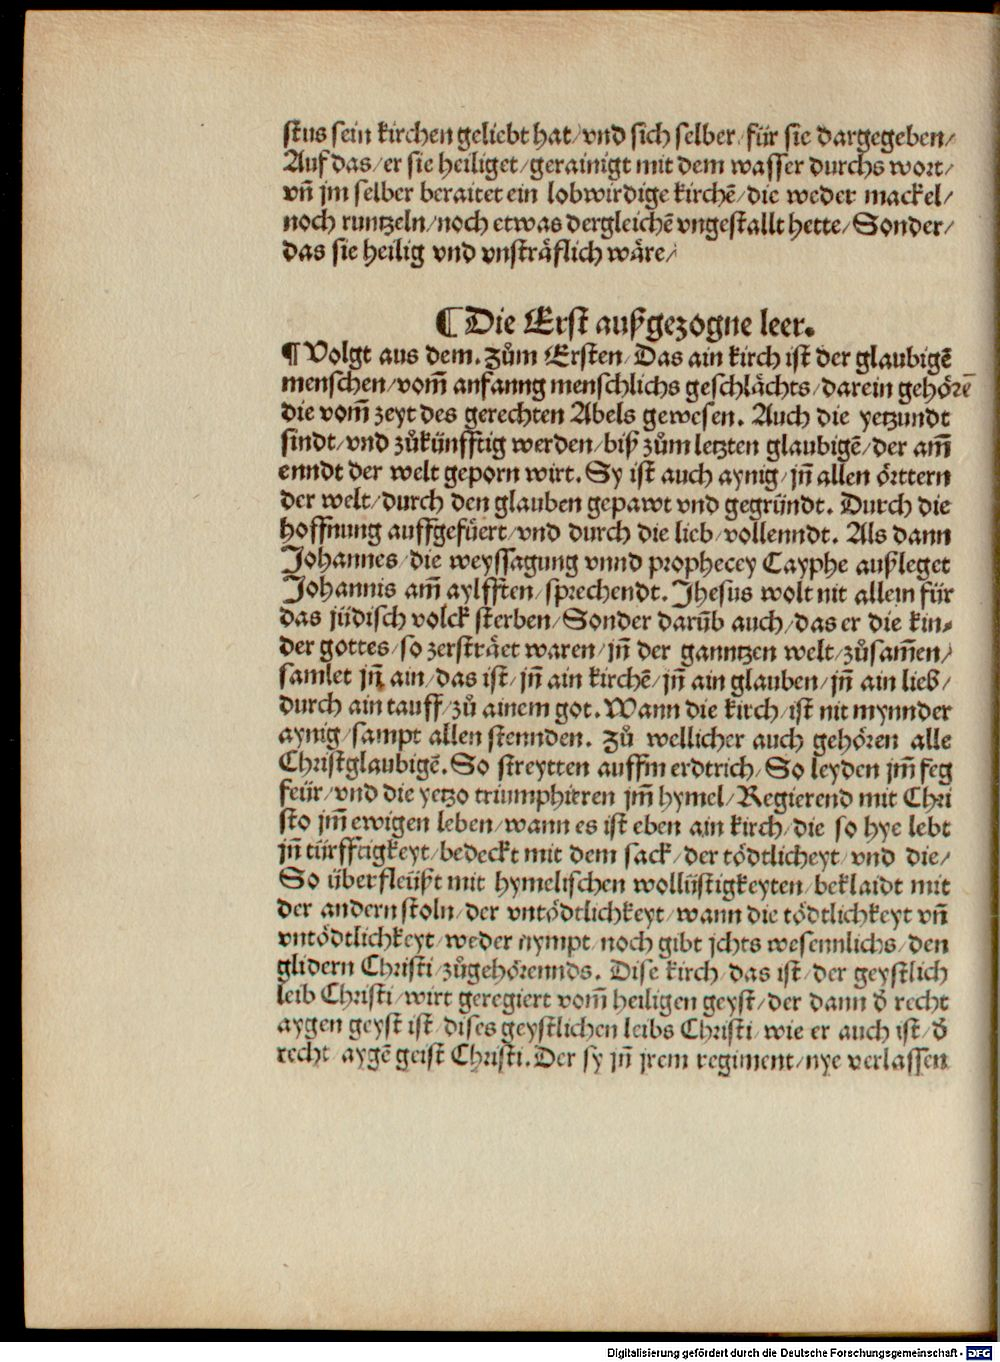 stus sein kirchen geliebt hat/ vnd sich selber/ für sie dargegeben/
Auf das/ er sie heiliget/ gerainigt mit dem wasser durchs wort/
vn̄ jm selber beraitet ein lobwirdige kirchē/ die weder mackel/
noch runtzeln/ noch etwas dergleichē vngestallt hette/ Sonder/
das sie heilig vnd vnsträflich wäre/
¶ Die Erst außgezogne leer.
¶ Volgt aus dem. Zům Ersten/ Das ain kirch ist der glaubigē
menschen/ vom̄ anfanng menschlichs geschlächts/ darein gehörē
die vom̄ zeyt des gerechten Abels gewesen. Auch die yetzundt
sindt/ vnd zůkünfftig werden/ biß zům letzten glaubigē/ der am̄
enndt der welt geporn wirt. Sy ist auch aynig/ jn̄ allen örttern
der welt/ durch den glauben gepawt vnd gegründt. Durch die
hoffnung auffgefüert/ vnd durch die lieb/ vollenndt. Als dann
Johannes/ die weyssagung vnnd prophecey Cayphe außleget
Johannis am̄ aylfften/ sprechendt. Jhesus wolt nit allein für
das jüdisch volck sterben/ Sonder darūb auch/ das er die kin⸗
der gottes/ so zersträet waren/ jn̄ der ganntzen welt/ zůsam̄en/
samlet jn̄ ain/ das ist/ jn̄ ain kirchē/ jn̄ ain glauben/ jn̄ ain lieb/
durch ain tauff/ zů ainem got. Wann die kirch/ ist nit mynnder
aynig/ sampt allen stennden. Zů wellicher auch gehören alle
Christglaubigē. So streytten auffm erdtrich/ So leyden jm̄ feg
feür/ vnd die yetzo triumphieren jm̄ hymel/ Regierend mit Chri
sto jm̄ ewigen leben/ wann es ist eben ain kirch/ die so hye lebt
jn̄ türfftigkeyt/ bedeckt mit dem sack/ der tödtlicheyt/ vnd die/
So überfleüßt mit hymelischen wollüstigkeyten/ beklaidt mit
der andern stoln/ der vntödtlichkeyt/ wann die tödtlichkeyt vn̄
vntödtlichkeyt/ weder nympt/ noch gibt jchts wesennlichs/ den
glidern Christi/ zůgehörennds. Dise kirch/ das ist/ der geystlich
leib Christi/ wirt geregiert vom̄ heiligen geyst/ der dann d̄ recht
aygen geyst ist/ dises geystlichen leibs Christi/ wie er auch ist/ d̄
recht aygē geist Christi. Der sy jn̄ jrem regiment/ nye verlassen
Digitalisierung gefördert durch die Deutsche Forschungsgemeinschaft - DFG